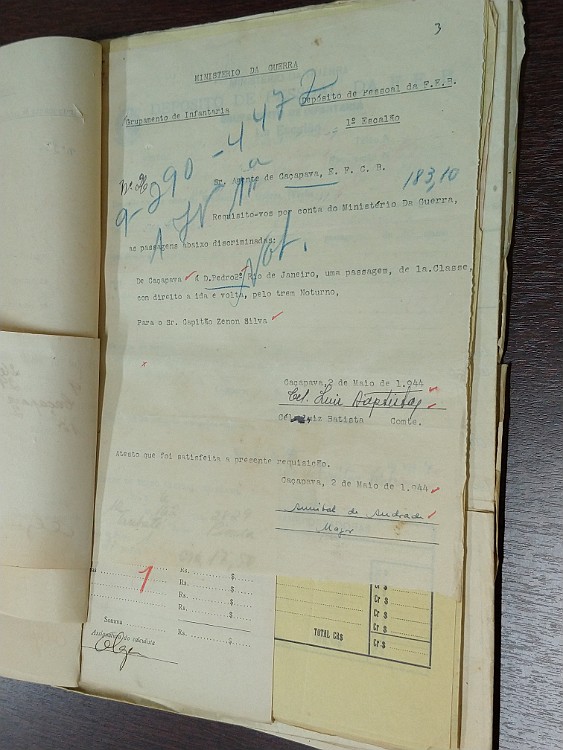 3
MINISTERIO DA GUERRA
Grupamento de Infantaria
Depósito de Pessoal da F.E.B.
1º Escalão
9-290-4472
Sr. Agente de Caçapava, E. F. C. B.
183,10
Requisito-vos por conta do Ministério Da Guerra,
as passagens abaixo discriminadas:
De Caçapava á D.Pedro2º Rio de Janeiro, uma passagem, de 1a.Classe,
con direito a ida e volta, pelo trem Noturno,
Para o Sr. Capitão Zenon Silva
x
Caçapava, 2 de Maio de 1.944
Cel. Luiz Baptista
Cél. Luiz Batista Comte.
Atesto que foi satisfeita a presente requisição.
Caçapava, 2 de Maio de 1.944
Anibal de Andrade
Major
1
Rs. $
Rs. $
Rs. $
Rs. $
Somma
Rs. $
Cr $
Cr $
Cr $
Cr $
TOTAL CR$
Cr $